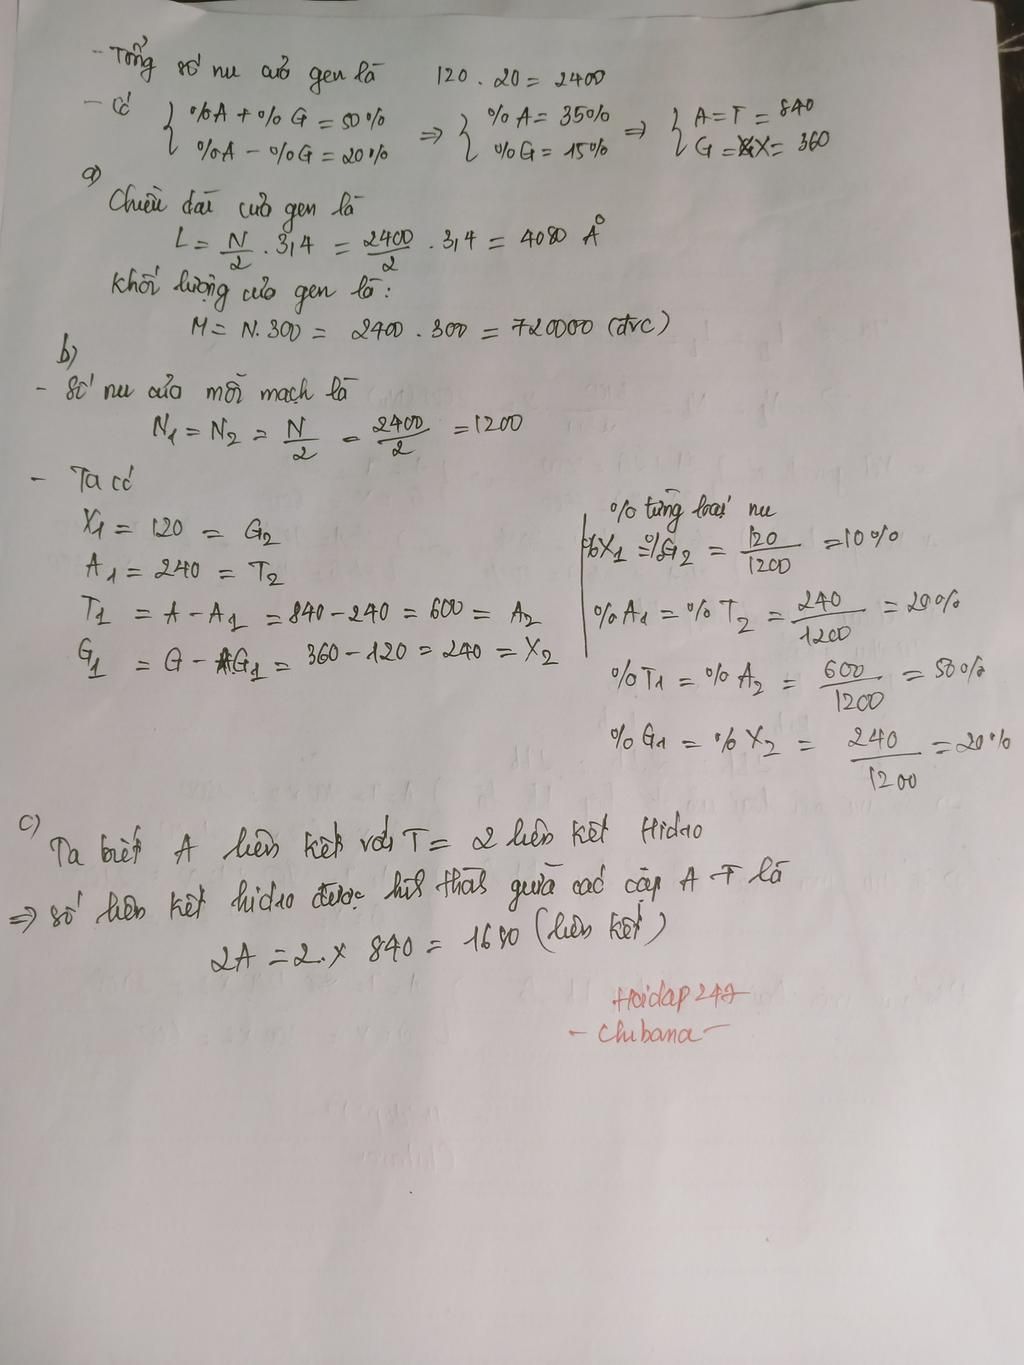 - Tổng số nu của gen là 120 . 20 = 2400
- Có { %A + %G = 50% => { %A = 35% => { A = T = 840
%A - %G = 20% %G = 15% G = X = 360
a)
Chiều dài của gen là
L = N/2 . 3,4 = 2400/2 . 3,4 = 4080 Å
Khối lượng của gen là:
M = N.300 = 2400 . 300 = 720000 (đvc)
b)
- Số nu của mỗi mạch là
N1 = N2 = N/2 = 2400/2 = 1200
- Ta có
X1 = 120 = G2
A1 = 240 = T2
T1 = A - A1 = 840 - 240 = 600 = A2
G1 = G - G1 = 360 - 120 = 240 = X2
% từng loại nu
%X1 = %G2 = 120/1200 = 10%
%A1 = %T2 = 240/1200 = 20%
%T1 = %A2 = 600/1200 = 50%
%G1 = %X2 = 240/1200 = 20%
c)
Ta biết A liên kết với T = 2 liên kết Hidro
=> số liên kết hidro được hình thành giữa các cặp A - T là
2A = 2 . x 840 = 1680 (liên kết)
Hoidap247
- Chibana -